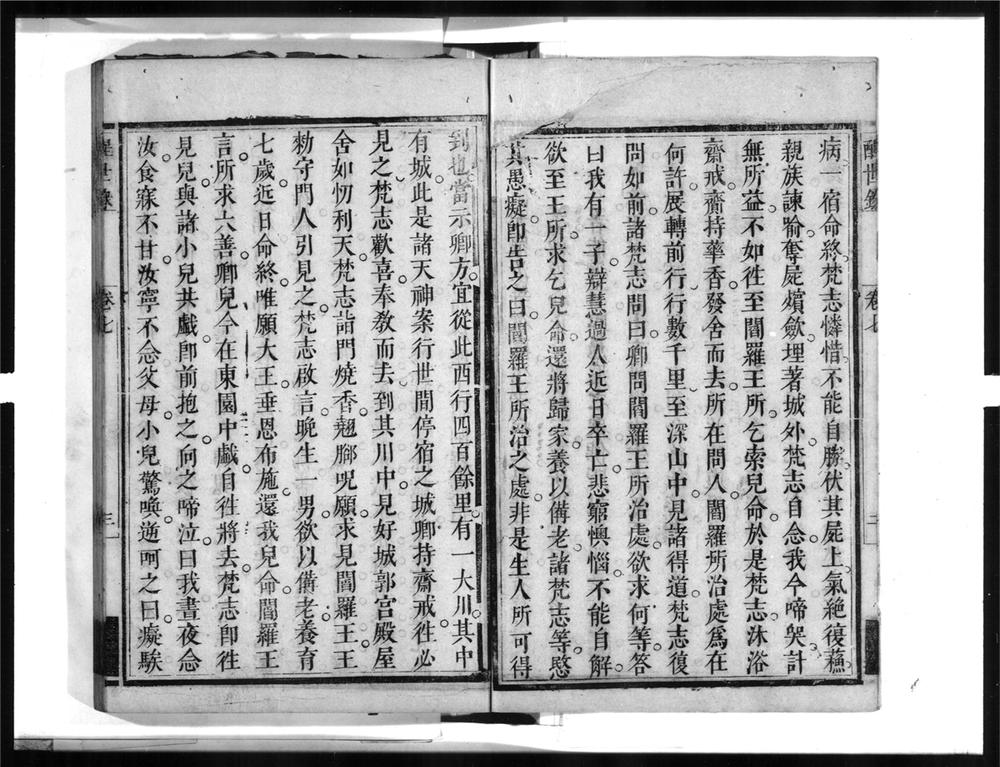 醒世錄
卷七
二
病一宿命終梵志憐惜不能自勝伏其屍上氣絶復蘇
親族諫喻奪屍殯歛埋著城外梵志自念我今啼哭計
無所益不如徃至閻羅王所乞索兒命於是梵志沐浴
齋戒齋持華香發舍而去所在問人閻羅所治處爲在
何許展轉前行行數千里至深山中見諸得道梵志復
問如前諸梵志問曰卿問閻羅王所治處欲求何等答
曰我有一子辯慧過人近日卒亡悲窮懊惱不能自解
欲至王所求乞兒命還將歸家養以備老諸梵志等愍
其愚癡卽告之曰閻羅王所治之處非是生人所可得
到也當示卿方宜從此西行四百餘里有一大川其中
有城此是諸天神案行世間停宿之城卿持齋戒徃必
見之梵志歡喜奉教而去到其川中見好城郭宮殿屋
舍如忉利天梵志詣門燒香翹腳呪願求見閻羅王王
勑守門人引見之梵志啟言晚生一男欲以備老養育
七歲近日命終唯願大王垂恩布施還我兒命閻羅王
言所求六善卿兒今在東園中戲自徃將去梵志卽徃
見兒與諸小兒共戲卽前抱之向之啼泣曰我晝夜念
汝食寐不甘汝寧不念父母小兒驚喚逆呵之曰癡騃
醒世錄
卷七
三